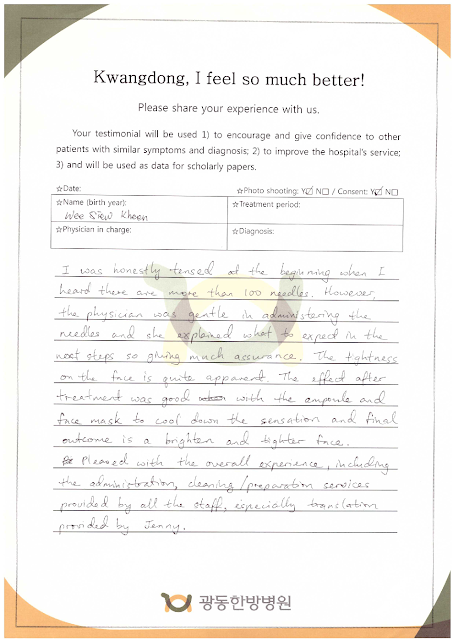 Kwangdong, I feel so much better!
Please share your experience with us.
Your testimonial will be used 1) to encourage and give confidence to other
patients with similar symptoms and diagnosis; 2) to improve the hospital's service;
3) and will be used as data for scholarly papers.
☆Date:
☆Photo shooting: Y☑ N□ / Consent: Y☑ N□
☆Name (birth year):
Wee Siew Kheen
☆Treatment period:
☆Physician in charge:
☆Diagnosis:
I was honestly tensed at the beginning when I
heard there are more than 100 needles. However,
the physician was gentle in administering the
needles and she explained what to expect in the
next steps so giving much assurance. The tightness
on the face is quite apparent. The effect after
treatment was good with the ampoule and
face mask to cool down the sensation and final
outcome is a brighten and tighter face.
Pleased with the overall experience, including
the administration, cleaning/preparation services
provided by all the staff, especially translation
provided by Jenny.
광동한방병원